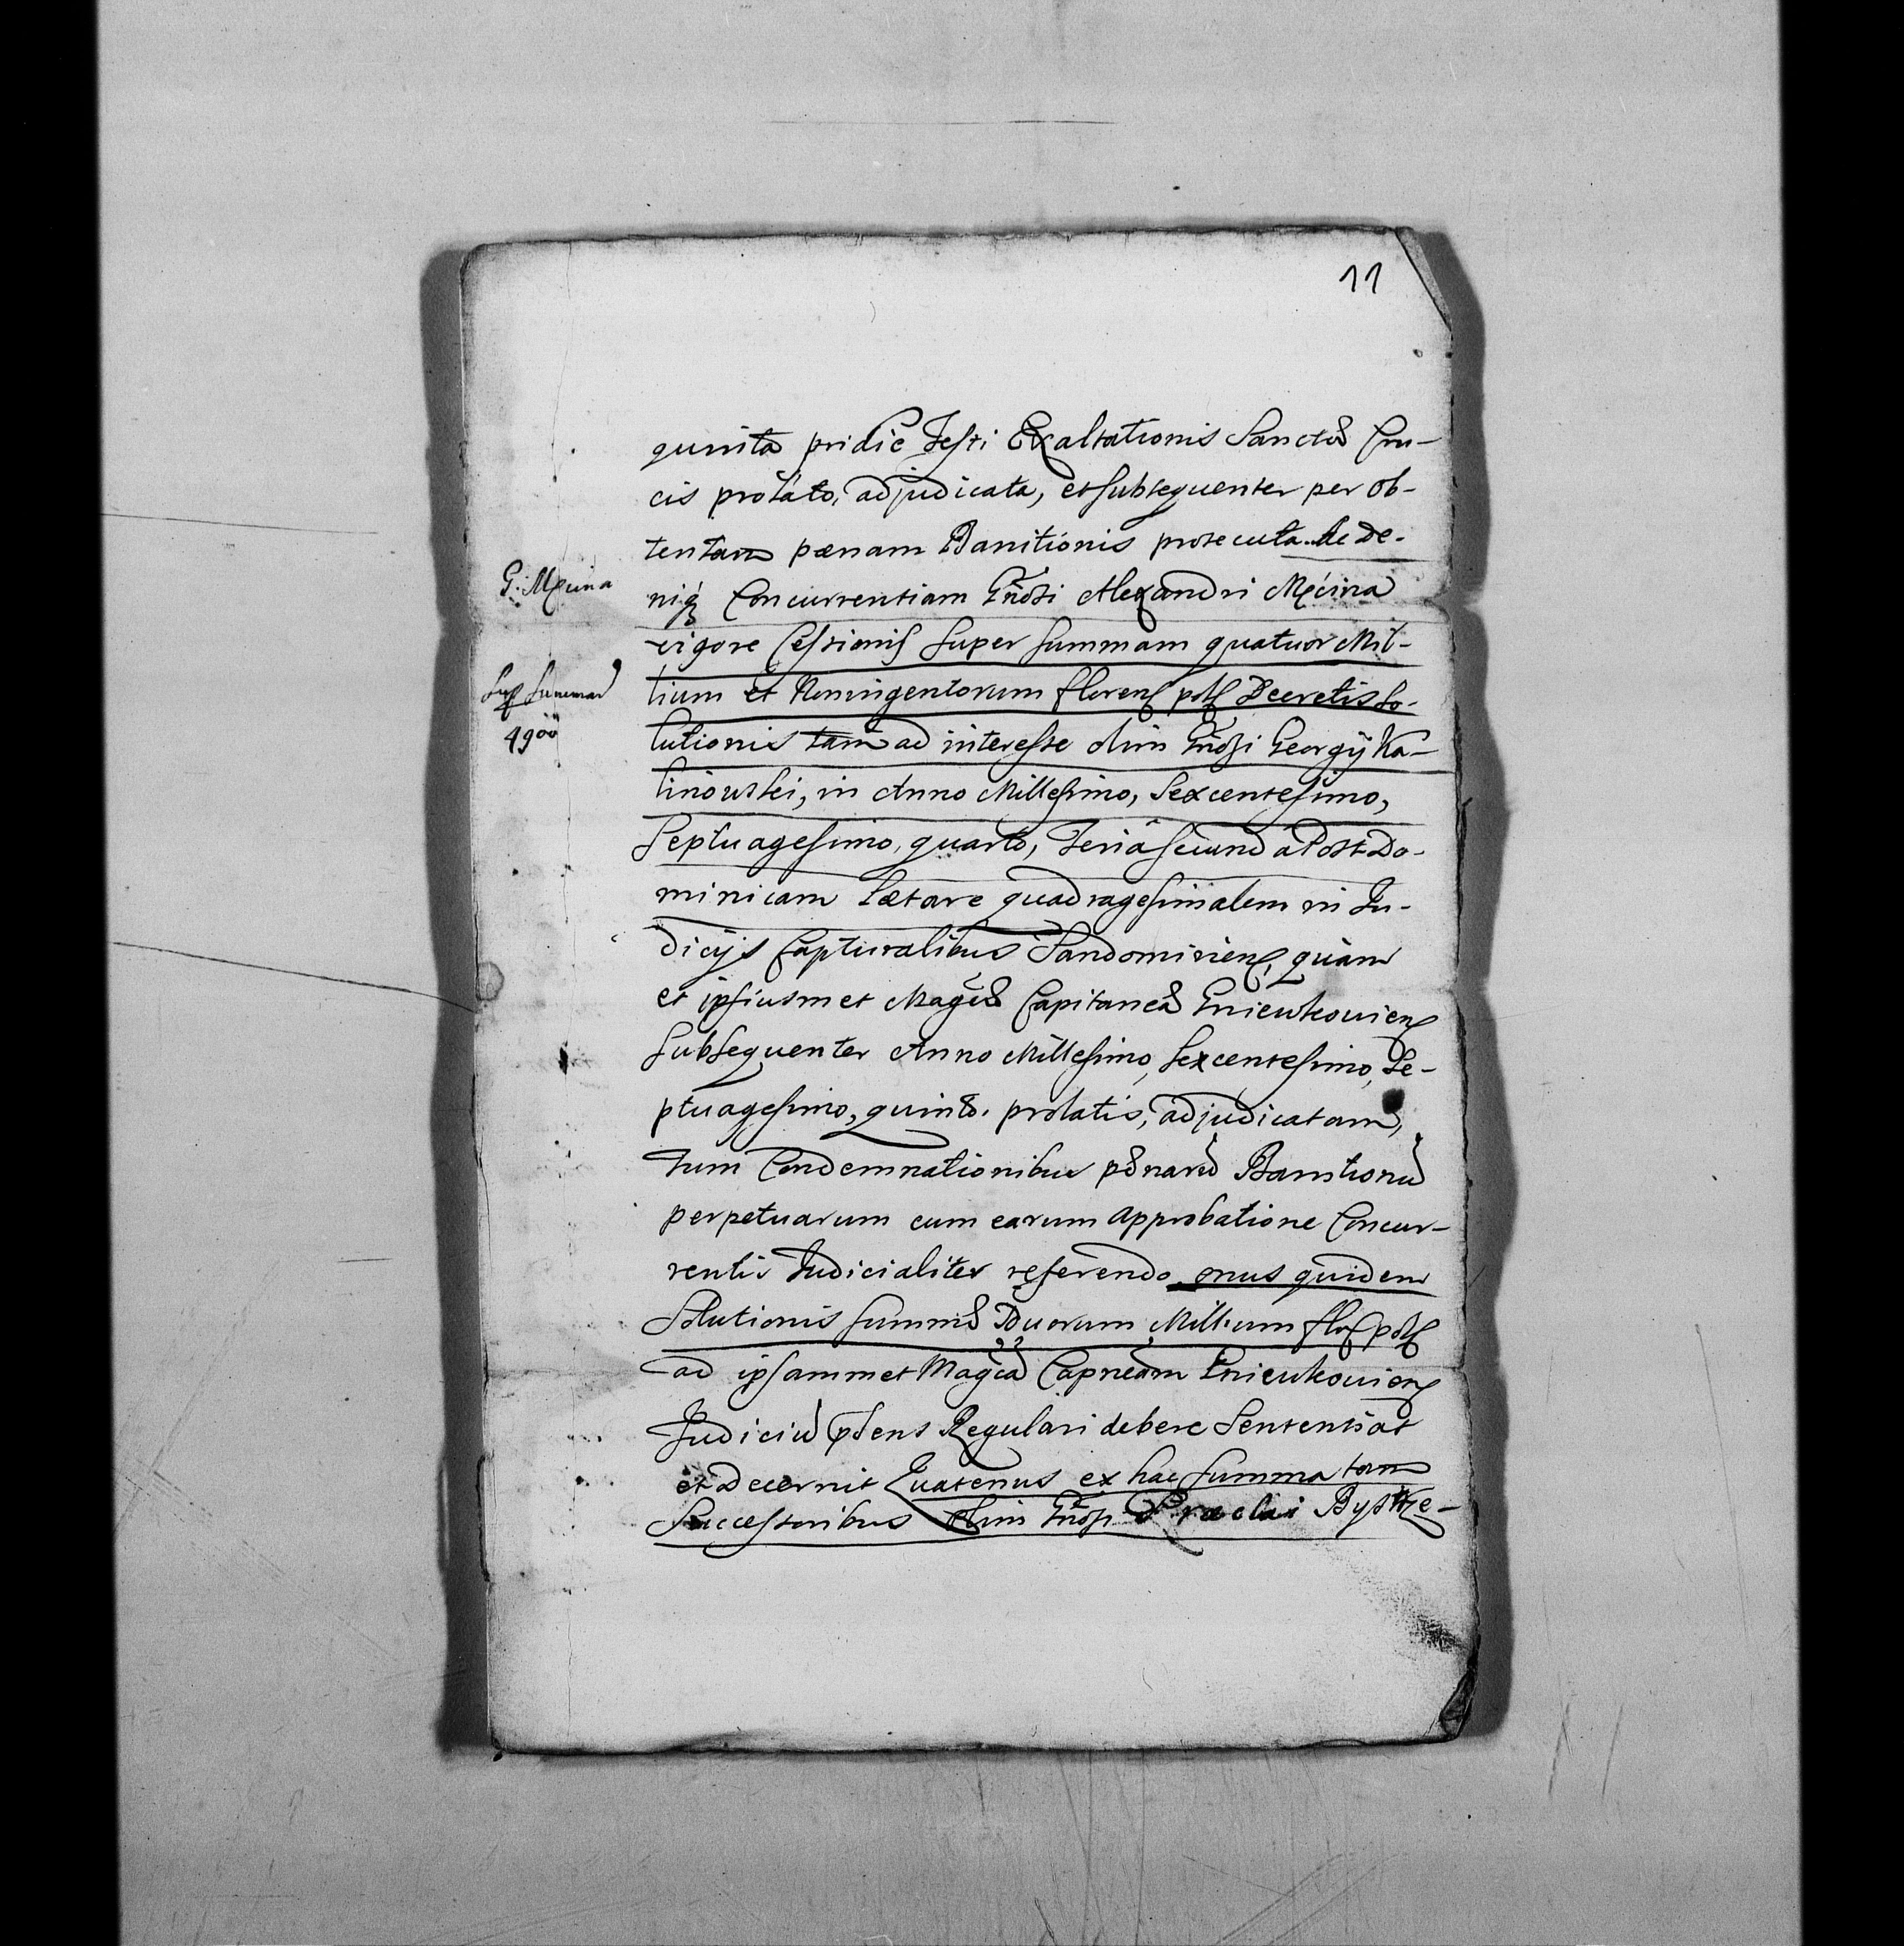 11
quinta pridie Festi Exaltationis Sanctæ Cru-
cis prolato, adjudicata, et subsequenter per ob-
tentam pœnam Banitionis prosecuta. Ac de-
G. Męcina
niq; Concurrentiam Gñosi Alexandri Męcina
vigore Cessionis super summam quatuor Mil-
Sup Summam
4900
lium et Noningentorum floren pol Decretis so-
lutionis tam ad interesse olim Gñosi Georgij Ka-
linowski, in Anno Millesimo, Sexcentesimo,
Septuagesimo, quarto, Feriâ secundâ Post Do-
minicam Lætare quadragesimalem in Ju-
dicijs Capturalibus Sandomirien, quàm
et ipsiusmet Magcæ Capitaneæ Gniewkovien
subsequenter Anno Millesimo, Sexcentesimo, Se-
ptuagesimo, quinto. prolatis, adjudicatam,
tum Condemnationibus pœnarũ Banitionũ
perpetuarum cum earum approbatione Concur-
rentis Judicialiter referendo onus quidem
Solutionis summæ Duorum Millium flor pol
ad ipsammet Magcã Capneam Gniewkovien
Judiciũ pñsens Regulari debere Sententiat
et Decernit Quatenus ex hac summa tam
Successoribus olim Gñosi Præclai Bystrze-